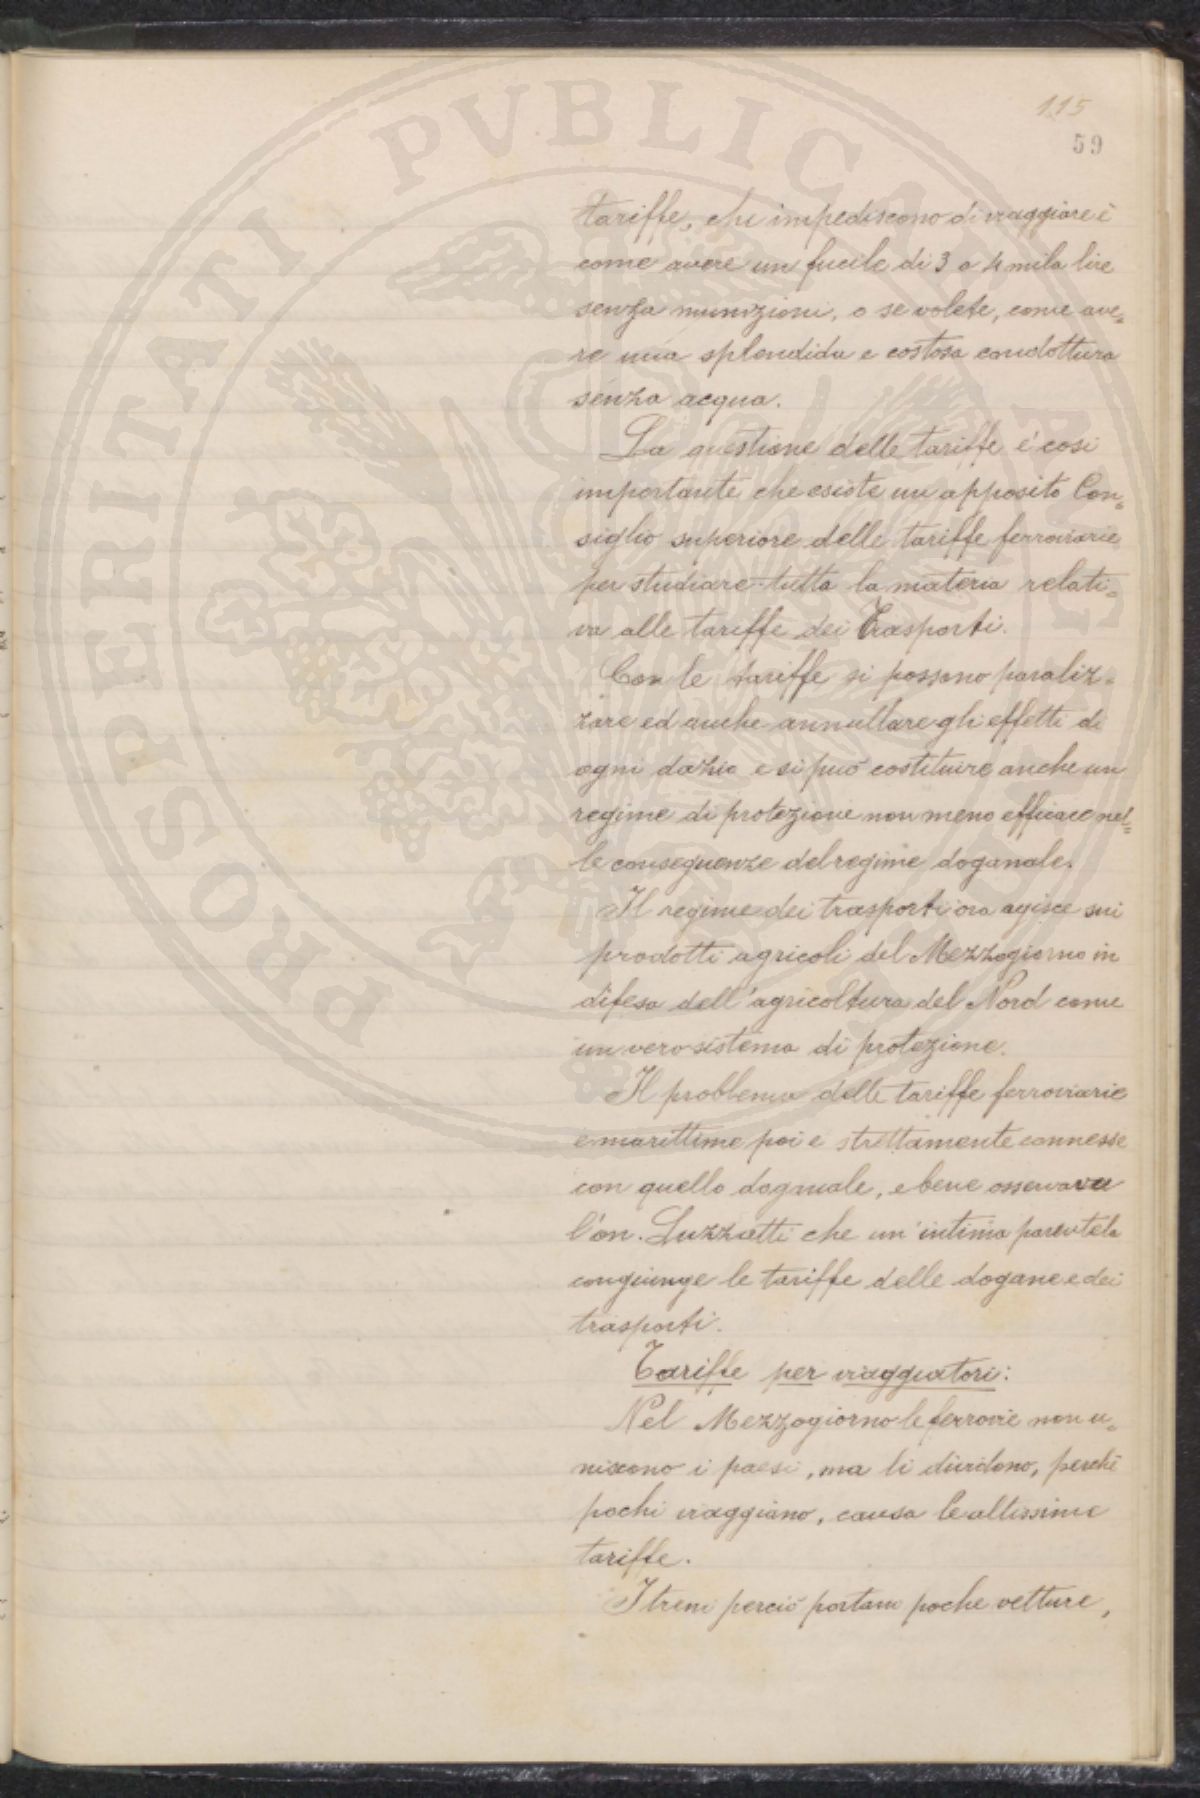 115
59
PROSPERITATI PVBLICAE
tariffe, che impediscono di viaggiare è
come avere un fucile di 3 o 4 mila lire
senza munizioni, o se volete, come ave=
re una splendida e costosa condottura
senza acqua.
La questione delle tariffe e' cosi
importante che esiste un apposito Con=
siglio superiore delle tariffe ferroviarie
per studiare tutta la materia relati=
va alle tariffe dei Trasporti.
Con le tariffe si possono paraliz=
zare ed anche annullare gli effetti di
ogni dazio e si può costituire anche un
regime di protezione non meno efficace nel=
le conseguenze del regime doganale.
Il regime dei trasporti ora agisce sui
prodotti agricoli del Mezzogiorno in
difesa dell'agricoltura del Nord come
un vero sistema di protezione.
Il problema delle tariffe ferroviarie
e marittime poi e strettamente connesse
con quello doganale, e bene osservava
l'on. Luzzatti che un'intima parentela
congiunge le tariffe delle dogane e dei
trasporti.
Tariffe per viaggiatori:
Nel Mezzogiorno le ferrovie non u=
niscono i paesi, ma li dividono, perchè
pochi viaggiano, causa le altissime
tariffe.
I treni perciò portano poche vetture,